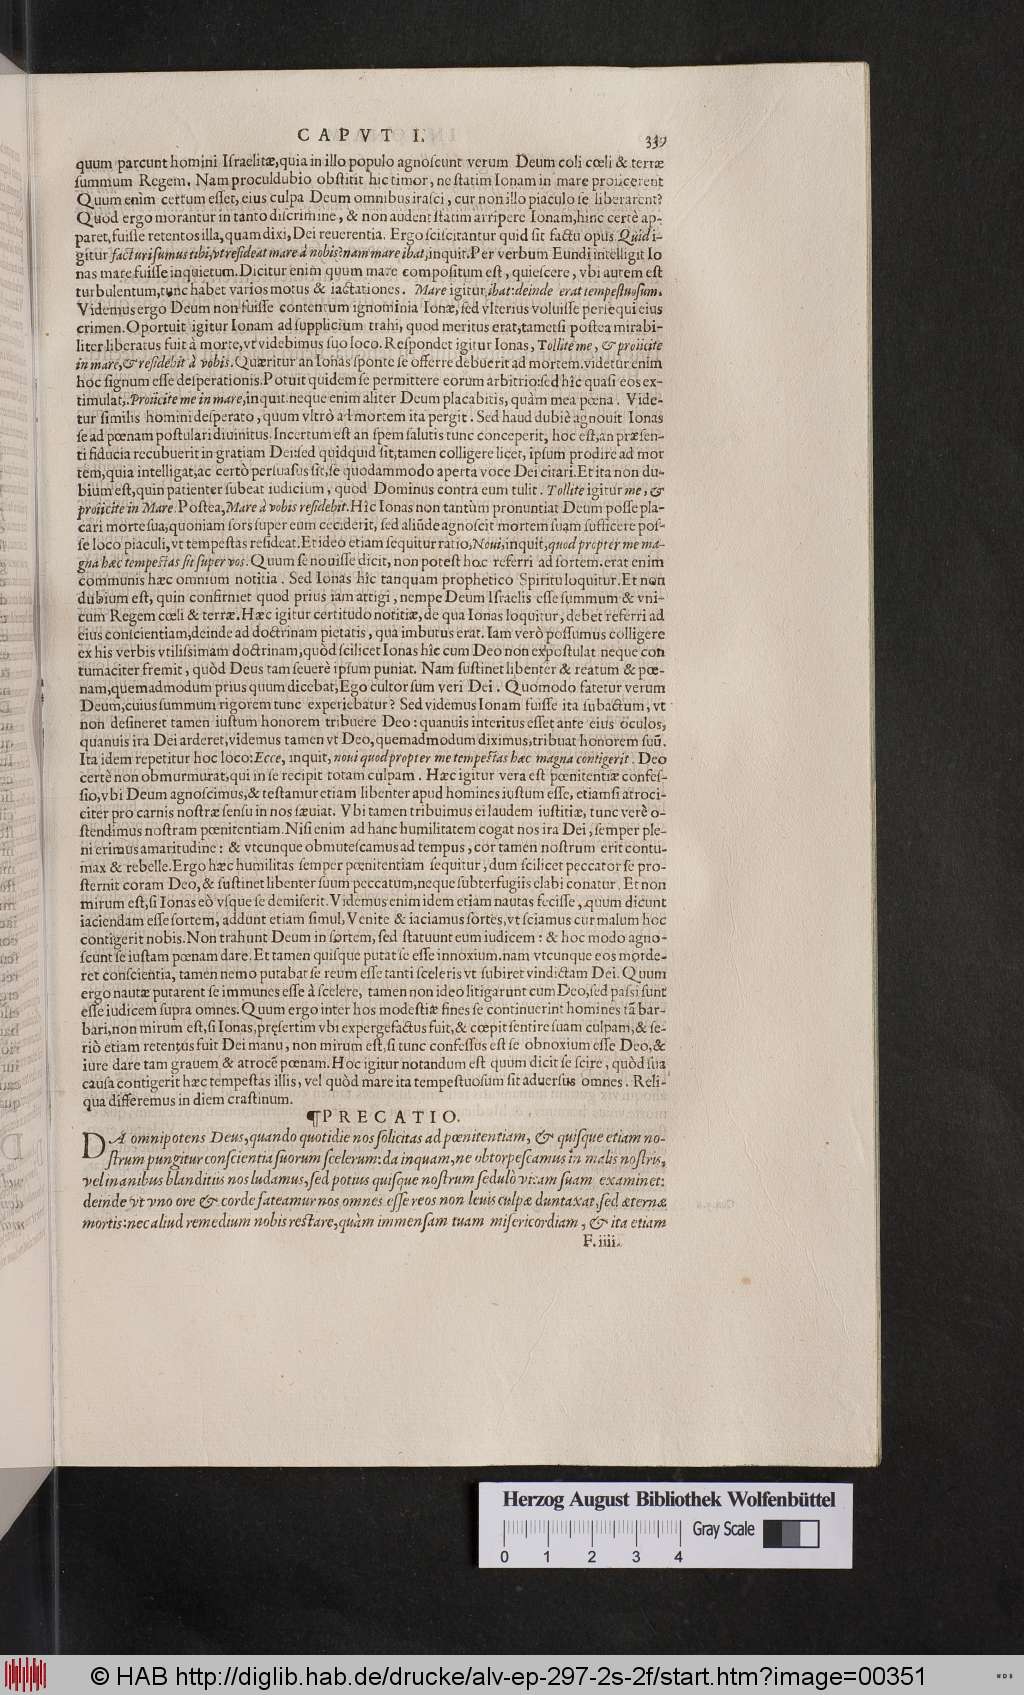 CAPVT I.
339
quum parcunt homini Iſraelitæ,quia in illo populo agnoſcunt verum Deum coli cœli & terræ
ſummum Regem. Nam proculdubio obſtitit hic timor, ne ſtatim Ionam in mare proiicerent
Quum enim certum eſſet, eius culpa Deum omnibus iraſci, cur non illo piaculo ſe liberarent?
Quòd ergo morantur in tanto diſcrimine, & non audent ſtatim arripere Ionam,hinc certè ap-
paret,fuiſſe retentos illa,quam dixi,Dei reuerentia. Ergo ſciſcitantur quid ſit factu opus Quid i-
gitur facturi ſumus tibi,vt reſideat mare à nobis?nam mare ibat,inquit.Per verbum Eundi intelligit Io
nas mare fuiſſe inquietum.Dicitur enim quum mare compoſitum eſt, quieſcere, vbi autem eſt
turbulentum,tunc habet varios motus & iactationes. Mare igitur,ibat:deinde erat tempeſtuoſum.
Videmus ergo Deum non fuiſſe contentum ignominia Ionæ,ſed vlterius voluiſſe perſequi eius
crimen.Oportuit igitur Ionam ad ſupplicium trahi, quod meritus erat,tametſi poſtea mirabi-
liter liberatus fuit à morte,vt videbimus ſuo loco.Reſpondet igitur Ionas, Tollite me, & proiicite
in mare,& reſidebit à vobis.Quæritur an Ionas ſponte ſe offerre debuerit ad mortem.videtur enim
hoc ſignum eſſe deſperationis.Potuit quidem ſe permittere eorum arbitrio:ſed hîc quaſi eos ex-
timulat,.Proiicite me in mare,inquit.neque enim aliter Deum placabitis, quàm mea pœna. Vide-
tur ſimilis homini deſperato, quum vltrò ad mortem ita pergit. Sed haud dubiè agnouit Ionas
ſe ad pœnam poſtulari diuinitus.Incertum eſt an ſpem ſalutis tunc conceperit, hoc eſt,an præſen-
ti fiducia recubuerit in gratiam Dei:ſed quidquid ſit,tamen colligere licet, ipſum prodire ad mor
tem,quia intelligat,ac certò perſuaſus ſit,ſe quodammodo aperta voce Dei citari.Et ita non du-
bium eſt,quin patienter ſubeat iudicium, quod Dominus contra eum tulit. Tollite igitur me, &
proiicite in Mare.Poſtea,Mare à vobis reſidebit.Hîc Ionas non tantùm pronuntiat Deum poſſe pla-
cari morte ſua,quoniam ſors ſuper eum ceciderit, ſed aliũde agnoſcit mortem ſuam ſufficere poſ-
ſe loco piaculi,vt tempeſtas reſideat.Et ideo etiam ſequitur ratio,Noui,inquit,quod propter me ma-
gna hæc tempeſtas ſit ſuper vos.Quum ſe nouiſſe dicit, non poteſt hoc referri ad ſortem.erat enim
communis hæc omnium notitia. Sed Ionas hîc tanquam prophetico Spiritu loquitur.Et non
dubium eſt, quin confirmet quod prius iam attigi, nempe Deum Iſraelis eſſe ſummum & vni-
cum Regem cœli & terræ.Hæc igitur certitudo notitiæ,de qua Ionas loquitur,debet referri ad
eius conſcientiam,deinde ad doctrinam pietatis, qua imbutus erat.Iam verò poſſumus colligere
ex his verbis vtiliſſimam doctrinam,quòd ſcilicet Ionas hîc cum Deo non expoſtulat neque con
tumaciter fremit, quòd Deus tam ſeuerè ipſum puniat. Nam ſuſtinet libenter & reatum & pœ-
nam,quemadmodum prius quum dicebat,Ego cultor ſum veri Dei. Quomodo fatetur verum
Deum,cuius ſummum rigorem tunc experiebatur? Sed videmus Ionam fuiſſe ita ſubactum, vt
non deſineret tamen iuſtum honorem tribuere Deo:quanuis interitus eſſet ante eius oculos,
quanuis ira Dei arderet,videmus tamen vt Deo,quemadmodum diximus,tribuat honorem ſuũ.
Ita idem repetitur hoc loco:Ecce, inquit, noui quod propter me tempeſtas hæc magna contigerit. Deo
certè non obmurmurat,qui in ſe recipit totam culpam. Hæc igitur vera eſt pœnitentiæ confeſ-
ſio,vbi Deum agnoſcimus,& teſtamur etiam libenter apud homines iuſtum eſſe, etiamſi atroci-
citer pro carnis noſtræ ſenſu in nos ſæuiat. Vbi tamen tribuimus ei laudem iuſtitiæ, tunc verè o-
ſtendimus noſtram pœnitentiam.Niſi enim ad hanc humilitatem cogat nos ira Dei, ſemper ple-
ni erimus amaritudine: & vtcunque obmuteſcamus ad tempus, cor tamen noſtrum erit contu-
max & rebelle.Ergo hæc humilitas ſemper pœnitentiam ſequitur,dum ſcilicet peccator ſe pro-
ſternit coram Deo,& ſuſtinet libenter ſuum peccatum,neque ſubterfugiis elabi conatur. Et non
mirum eſt,ſi Ionas eò vſque ſe demiſerit.Videmus enim idem etiam nautas feciſſe, quum dicunt
iaciendam eſſe ſortem, addunt etiam ſimul,Venite & iaciamus ſortes,vt ſciamus cur malum hoc
contigerit nobis.Non trahunt Deum in ſortem, ſed ſtatuunt eum iudicem: & hoc modo agno-
ſcunt ſe iuſtam pœnam dare.Et tamen quiſque putat ſe eſſe innoxium.nam vtcunque eos morde-
ret conſcientia, tamen nemo putabat ſe reum eſſe tanti ſceleris vt ſubiret vindictam Dei. Quum
ergo nautæ putarent ſe immunes eſſe à ſcelere, tamen non ideo litigarunt cum Deo,ſed paſſi ſunt
eſſe iudicem ſupra omnes.Quum ergo inter hos modeſtiæ fines ſe continuerint homines tã bar-
bari,non mirum eſt,ſi Ionas,pręſertim vbi expergefactus fuit,& cœpit ſentire ſuam culpam,& ſe-
riò etiam retentus fuit Dei manu, non mirum eſt,ſi tunc confeſſus eſt ſe obnoxium eſſe Deo,&
iure dare tam grauem & atrocẽ pœnam.Hoc igitur notandum eſt quum dicit ſe ſcire, quòd ſua
cauſa contigerit hæc tempeſtas illis, vel quòd mare ita tempeſtuoſum ſit aduerſus omnes. Reli-
qua differemus in diem craſtinum.
¶PRECATIO.
DA omnipotens Deus,quando quotidie nos ſolicitas ad pœnitentiam, & quiſque etiam no-
ſtrum pungitur conſcientia ſuorum ſcelerum:da inquam,ne obtorpeſcamus in malis noſtris,
vel inanibus blanditiis nos ludamus,ſed potius quiſque noſtrum ſedulò vitam ſuam examinet:
deinde vt vno ore & corde fateamur nos omnes eſſe reos non leuis culpæ duntaxat,ſed æternæ
mortis:nec aliud remedium nobis reſtare,quàm immenſam tuam miſericordiam, & ita etiam
F.iiii.
Herzog August Bibliothek Wolfenbüttel
Gray Scale
0 1 2 3 4
© HAB http://diglib.hab.de/drucke/alv-ep-297-2s-2f/start.htm?image=00351
WDB